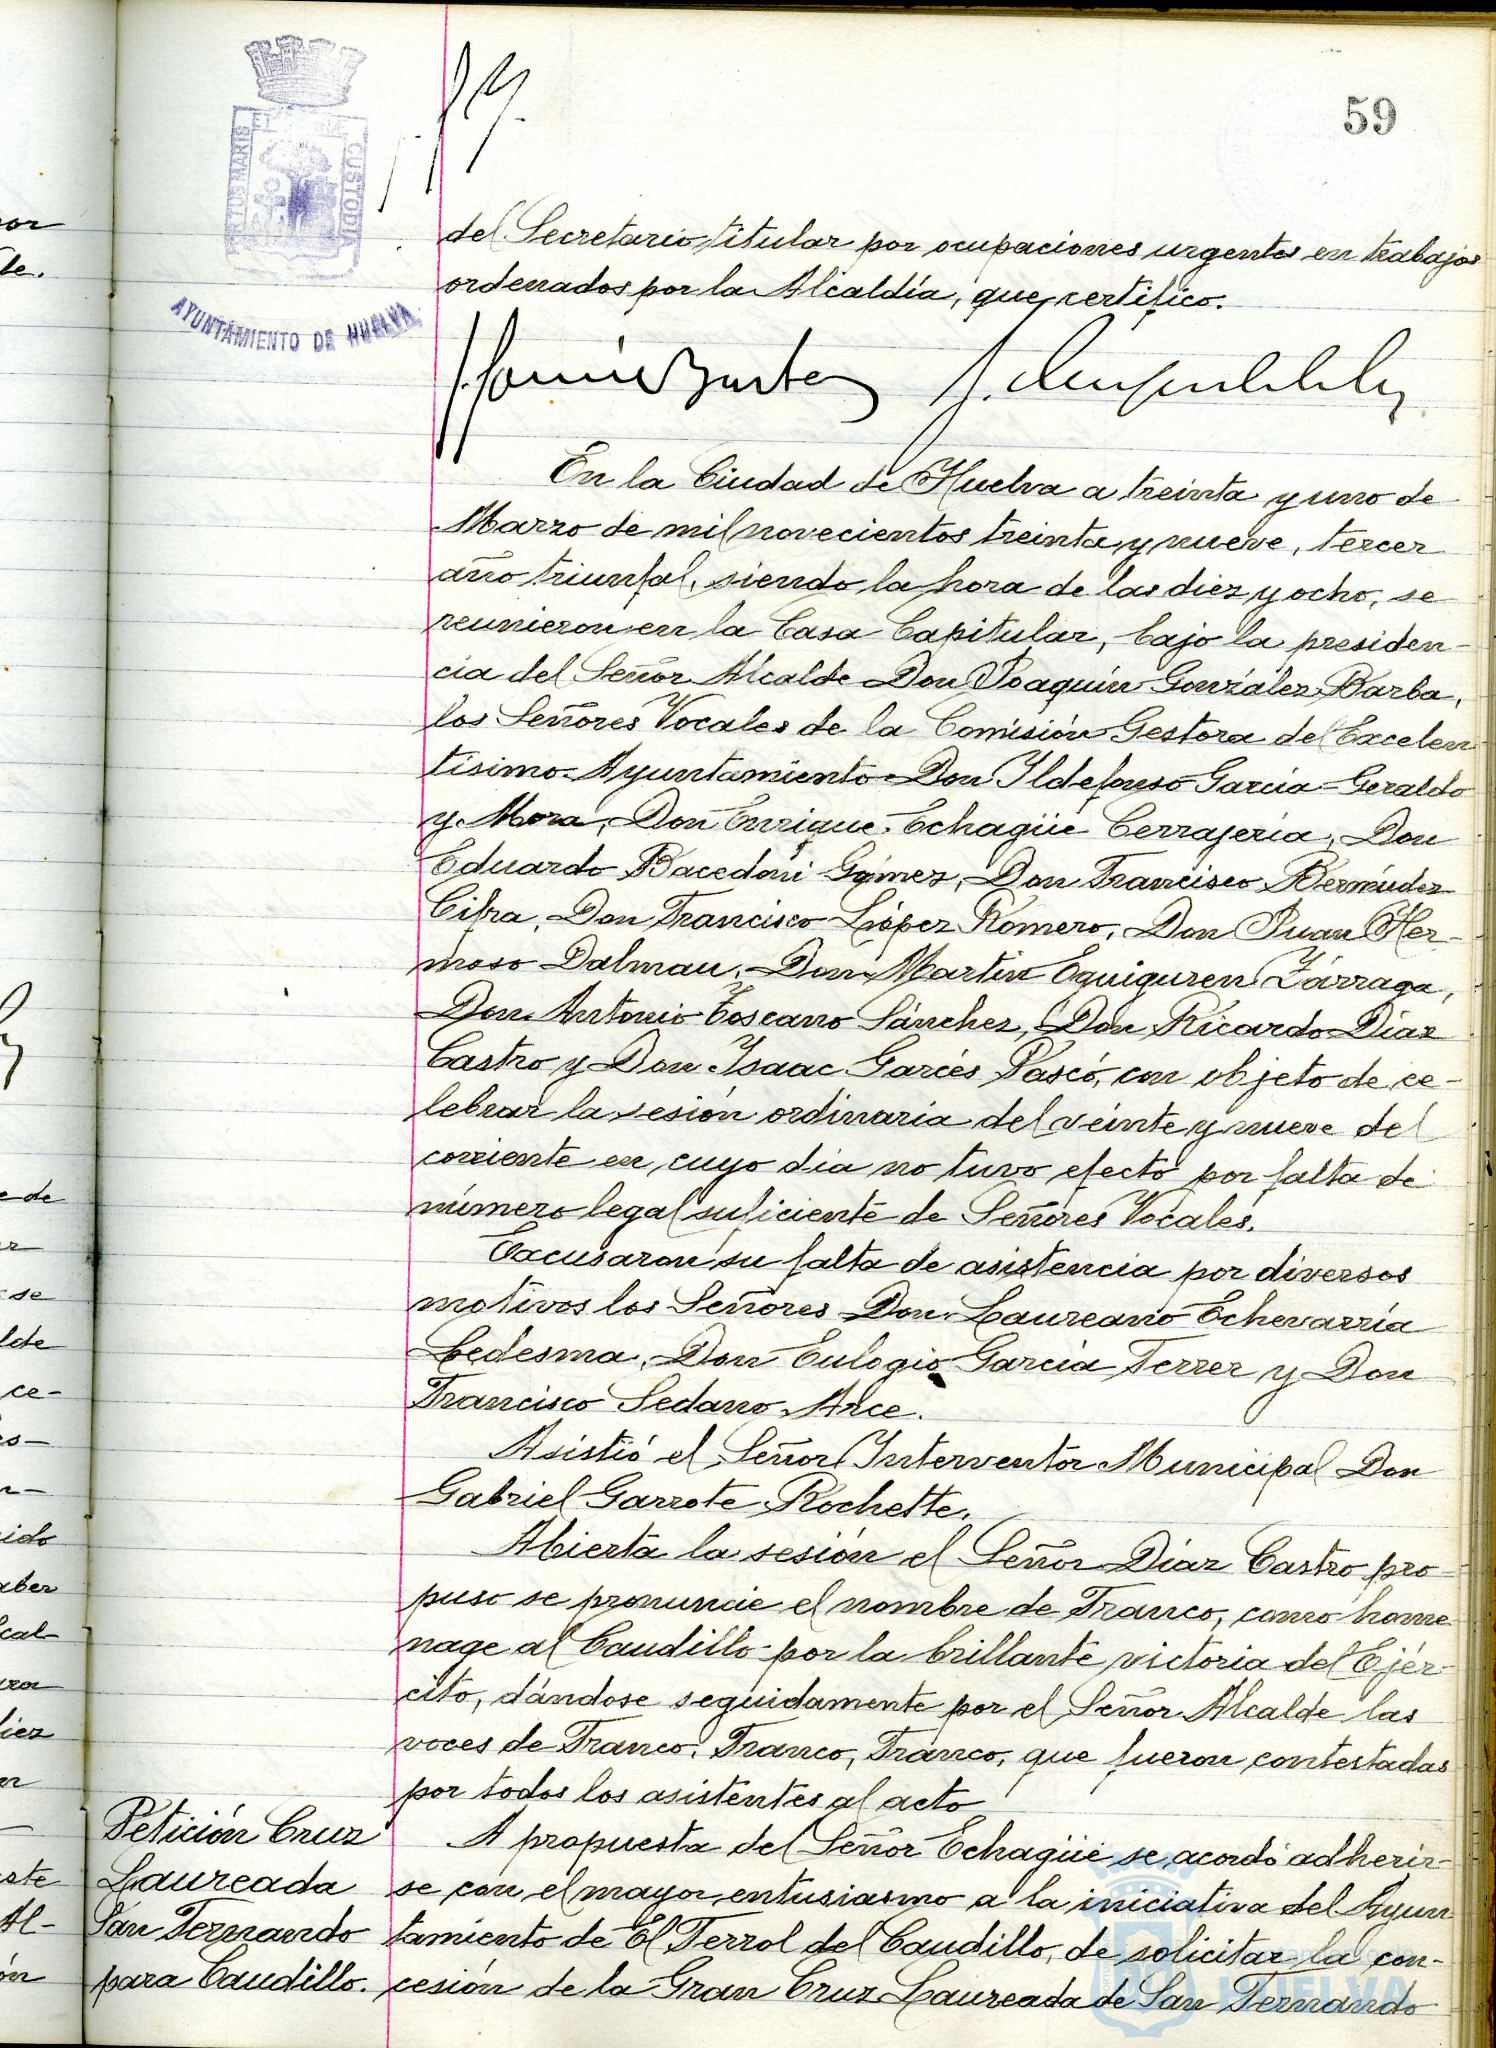 59
PORTUS MARIS ET TERRAE CUSTODIA
AYUNTAMIENTO DE HUELVA
del Secretario titular por ocupaciones urgentes en trabajos
ordenados por la Alcaldía, que certifico.
En la Ciudad de Huelva a treinta y uno de
Marzo de mil novecientos treinta y nueve, tercer
año triunfal, siendo la hora de las diez y ocho, se
reunieron en la Casa Capitular, bajo la presiden-
cia del Señor Alcalde Don Joaquín González Barba,
los Señores Vocales de la Comisión Gestora del Excelen
tísimo Ayuntamiento Don Ildefonso García-Geraldo
y Mora, Don Enrique Echagüe Cerrajería, Don
Eduardo Bacedoni Gómez, Don Francisco Bermúdez
Cifra, Don Francisco López Romero, Don Juan Her-
moso Dalmau, Don Martín Eguiguren Zárraga,
Don Antonio Toscano Sánchez, Don Ricardo Díaz
Castro y Don Isaac Garcés Pascó, con objeto de ce-
lebrar la sesión ordinaria del veinte y nueve del
corriente en cuyo día no tuvo efecto por falta de
número legal suficiente de Señores Vocales.
Excusaron su falta de asistencia por diversos
motivos los Señores Don Laureano Echevarría
Ledesma, Don Eulogio García Ferrer y Don
Francisco Sedano Arce.
Asistió el Señor Interventor Municipal Don
Gabriel Garrote Rochette.
Abierta la sesión el Señor Díaz Castro pro-
puso se pronuncie el nombre de Franco, como home
nage al Caudillo por la brillante victoria del Ejér-
cito, dándose seguidamente por el Señor Alcalde las
voces de Franco, Franco, Franco, que fueron contestadas
por todos los asistentes al acto
Petición Cruz
Laureada
San Fernando
para Caudillo.
A propuesta del Señor Echagüe se acordó adherir-
se con el mayor entusiasmo a la iniciativa del Ayun
tamiento de El Ferrol del Caudillo, de solicitar la con-
cesión de la Gran Cruz Laureada de San Fernando
HUELVA